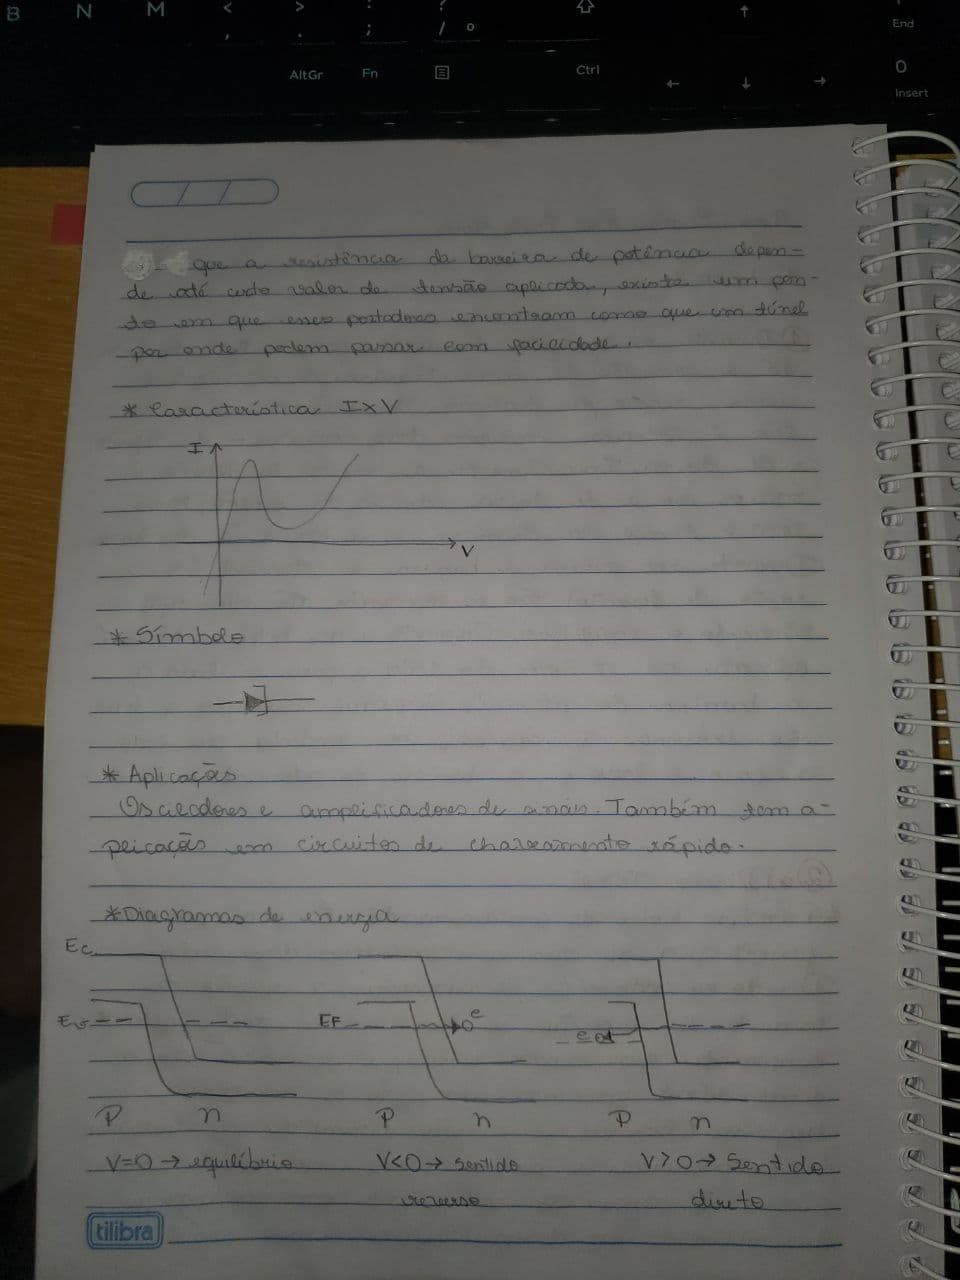 B N M < > : ? ⇧ ↑ End
, . ; / °
AltGr Fn Ctrl ← ↓ → 0 Insert
que a resistência da barreira de potência depen-
de até certo valor de tensão aplicada, existe um pon-
to em que esses portadores encontram como que um túnel
por onde podem passar com facilidade.
* Característica IxV
I
V
* Símbolo
* Aplicações
Osciladores e amplificadores de sinais. Também tem a-
plicações em circuitos de chaveamento rápido.
*Diagramas de energia
Ec
EF
e
e
P n P n P n
V=0 → equilíbrio V<0 → sentido V>0 → Sentido
reverso direto
tilibra